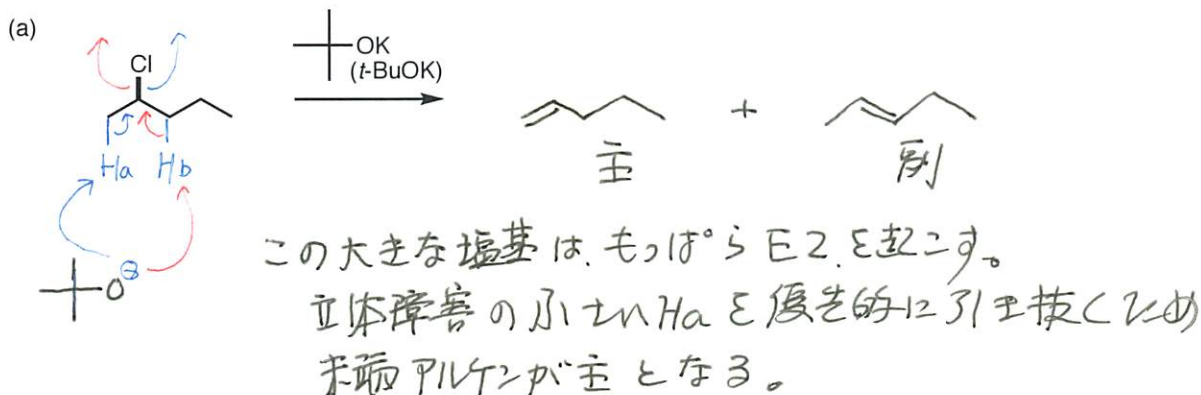 (a)
Cl
OK
(t-BuOK)
+
Ha Hb
主
副
O⊖
この大きな塩基は、もっぱらE2を起こす。
立体障害の小さいHaを優先的に引き抜くため
末端アルケンが主となる。